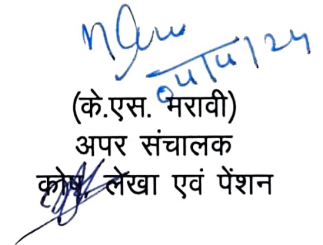 04/4/24
(के.एस. मरावी)
अपर संचालक
कोष, लेखा एवं पेंशन